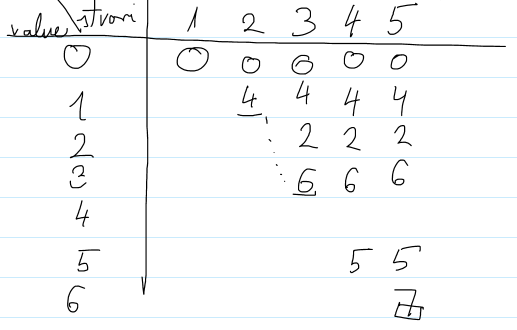 value \ stvari 1 2 3 4 5
0 0 0 0 0 0
1 4 4 4 4
2 2 2 2
3 6 6 6
4
5 5 5
6 7